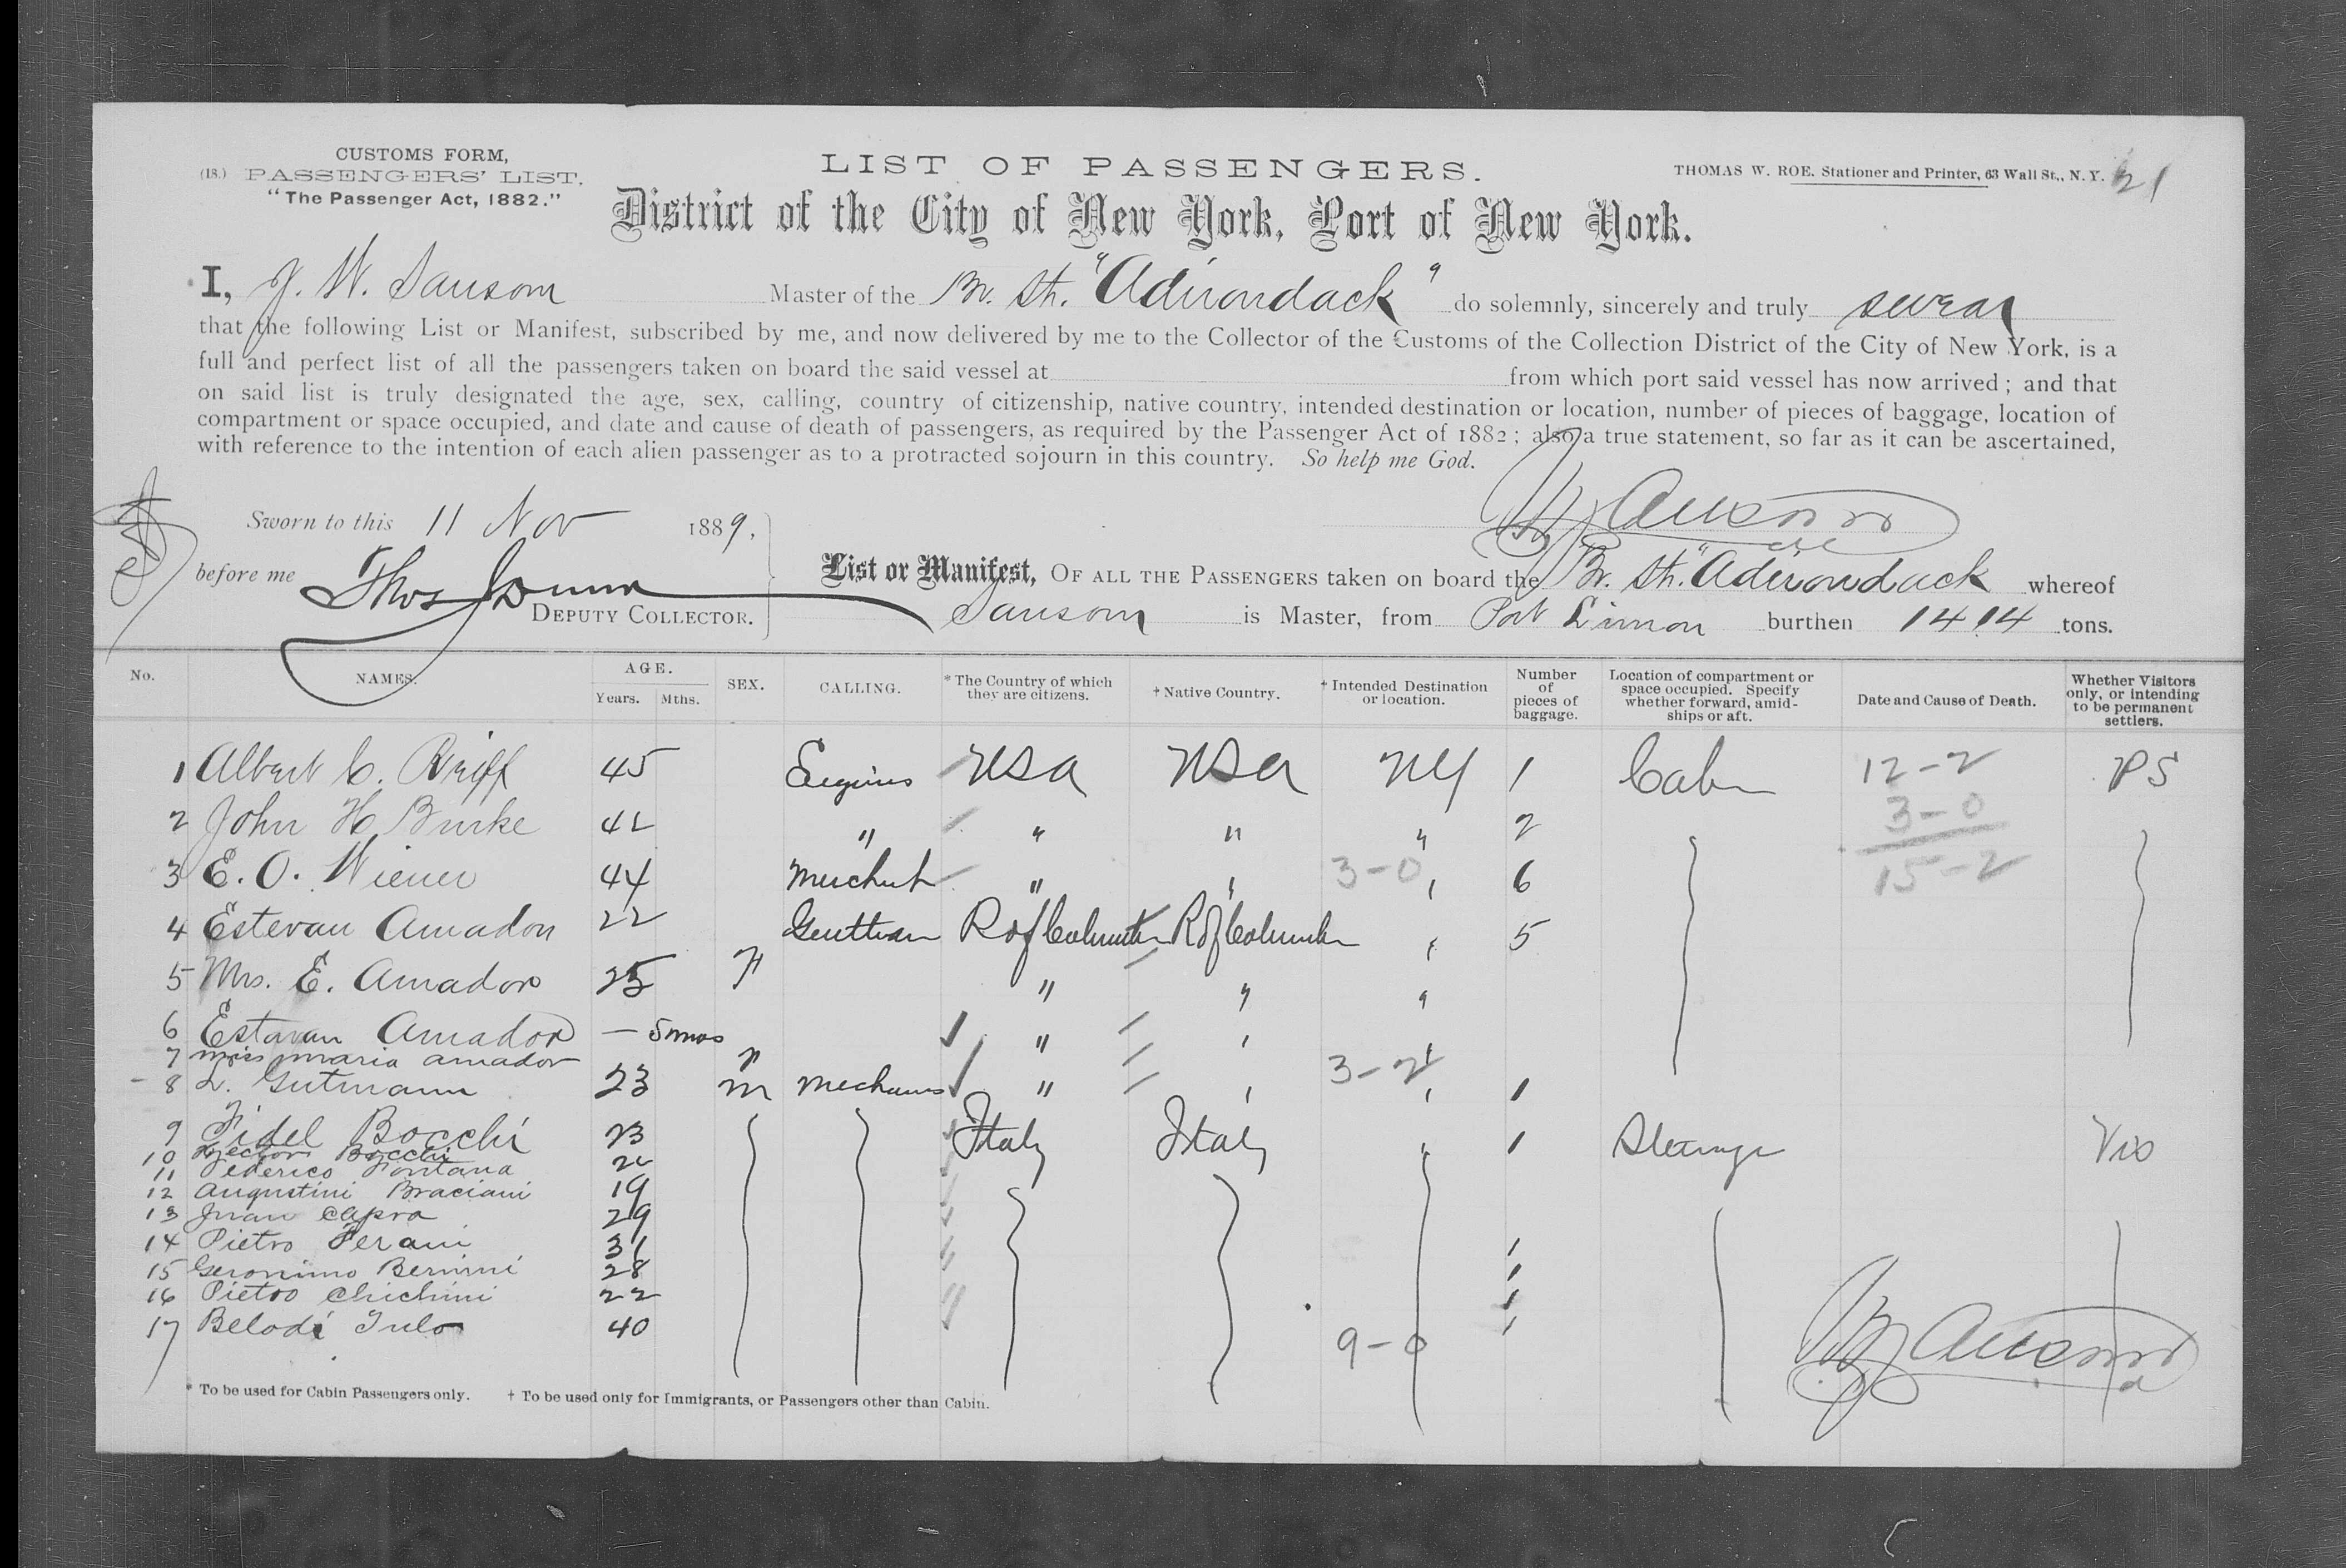 CUSTOMS FORM,
(18.) PASSENGERS' LIST.
"The Passenger Act, 1882."
LIST OF PASSENGERS.
THOMAS W. ROE. Stationer and Printer, 63 Wall St., N.Y. 21
District of the City of New York, Port of New York.
I, J. W. Sansom Master of the Br. Str. "Adirondack" do solemnly, sincerely and truly swear
that the following List or Manifest, subscribed by me, and now delivered by me to the Collector of the Customs of the Collection District of the City of New York, is a
full and perfect list of all the passengers taken on board the said vessel at from which port said vessel has now arrived; and that
on said list is truly designated the age, sex, calling, country of citizenship, native country, intended destination or location, number of pieces of baggage, location of
compartment or space occupied, and date and cause of death of passengers, as required by the Passenger Act of 1882; also a true statement, so far as it can be ascertained,
with reference to the intention of each alien passenger as to a protracted sojourn in this country. So help me God.
JW Sansom
Sworn to this 11 Nov 1889,
before me Thos Dunn
DEPUTY COLLECTOR.
List or Manifest, OF ALL THE PASSENGERS taken on board the Br. Str. "Adirondack whereof
Sansom is Master, from Port Limon burthen 1414 tons.
No. NAMES. AGE. Years. Mths. SEX. CALLING. * The Country of which they are citizens. † Native Country. † Intended Destination or location. Number of pieces of baggage. Location of compartment or space occupied. Specify whether forward, amidships or aft. Date and Cause of Death. Whether Visitors only, or intending to be permanent settlers.
1 Albert C. 45 USA USA NY 1 Cabin 12-2 PS
2 John H Burke 42 " " " " 2 3-0
3 E. O. Wiener 44 Merchant " " 3-0 " 6 15-2
4 Estevan Amador 22 Gentleman R of Columbia R of Columbia " 5
5 Mrs. E. Amador 25 F " " "
6 Estavan Amador — 5 mos " " "
7 Miss Maria Amador F 3-2
8 L. Gutmann 23 M Mechanic " " " 1
9 Fidel Bocchi 23 Italy Italy " 1 Steerage Vis
10 Bocchi
11 Federico Fontana
12 Augustini Braciani 19
13 Juan Capra 29
14 Pietro Ferani 31 1
15 Geronimo Bernini 28 1
16 Pietro Chichini 22 1
17 Belodi Tulo 40 1
9-0
JW Sansom
* To be used for Cabin Passengers only. † To be used only for Immigrants, or Passengers other than Cabin.